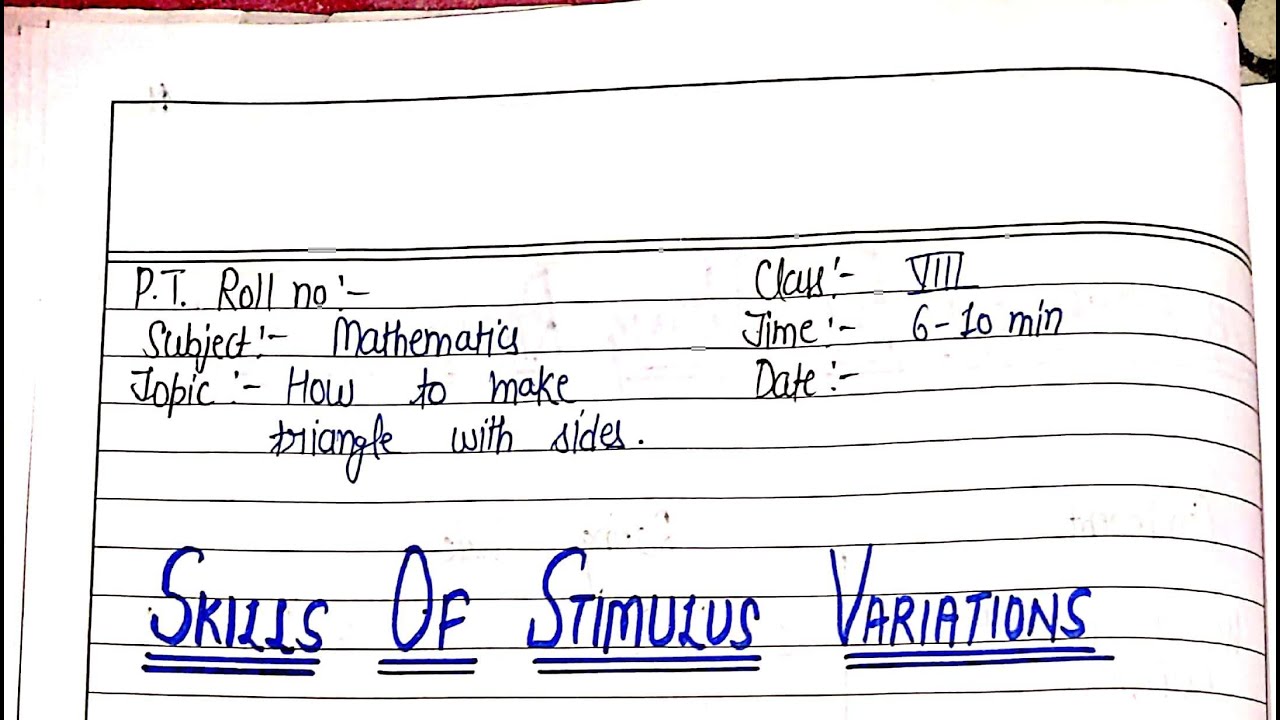 P.T. Roll no :- Class :- VIII
Subject :- Mathematics Time :- 6-10 min
Topic :- How to make Date :-
triangle with sides.
SKILLS OF STIMULUS VARIATIONS